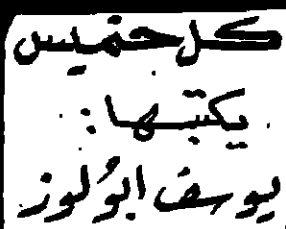 كل خميس
يكتبها:
يوسف أبو لوز